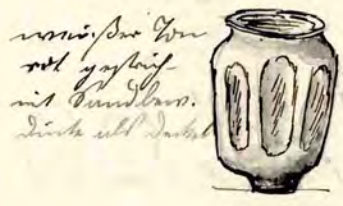 weißer Ton
rot gestrich.
mit Sandbew.
diente als Deckel